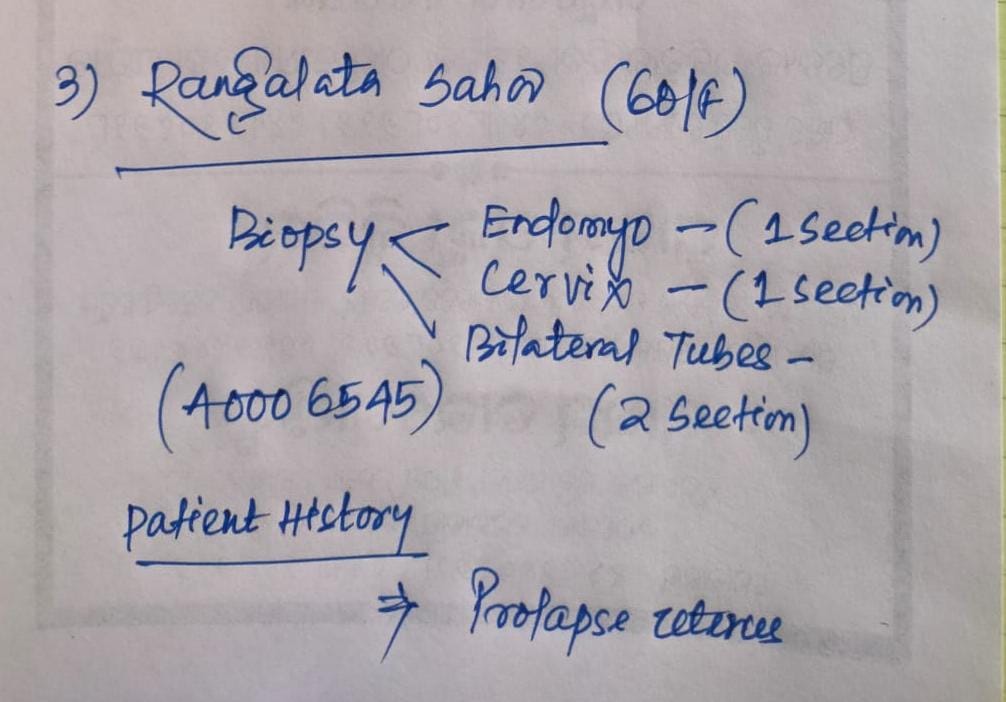 3) Rangalata Sahoo (60/F)
Biopsy < Endomyo - (1 Section)
Cervix - (1 Section)
Bilateral Tubes -
(A0006545) (2 Section)
Patient History
⇒ Prolapse uterus